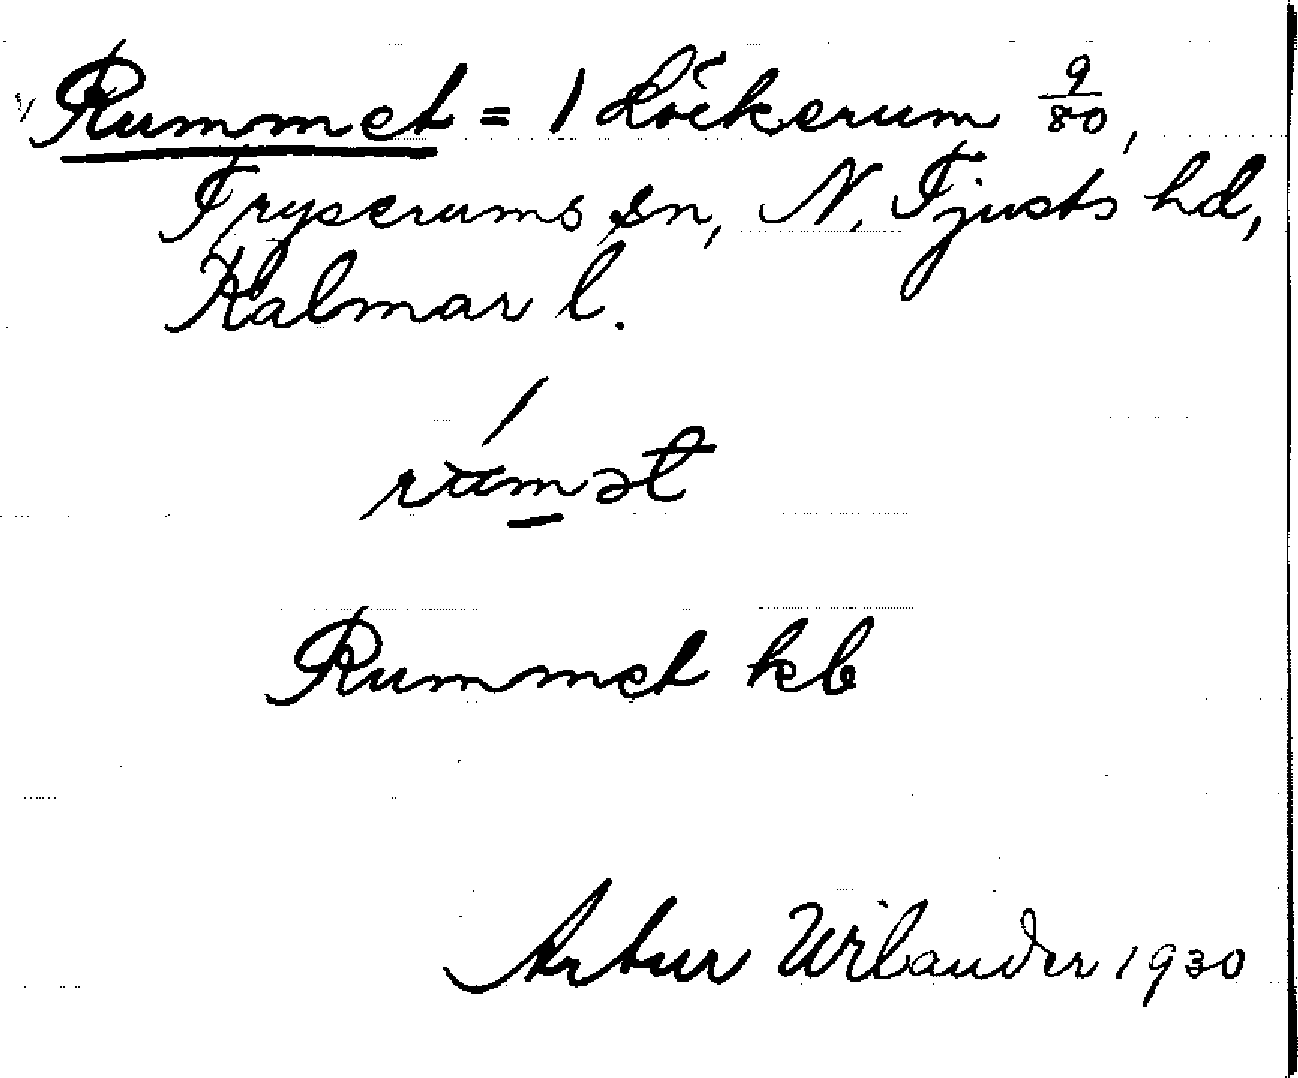 Rummet = 1 Löckerum 9/80,
Tryserums sn, N. Tjusts hd,
Kalmar l.
Rummet kb
Artur Wilander 1930